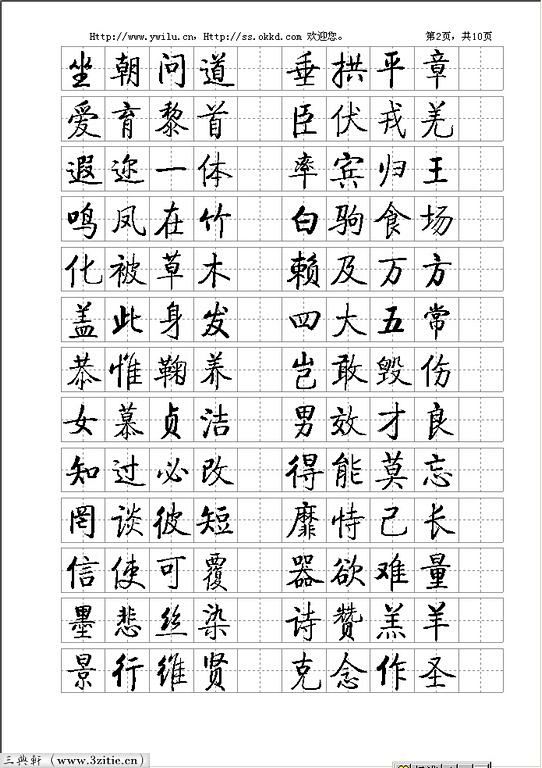 Http://www.ywilu.cn, Http://ss.okkd.com 欢迎您。 第2页，共10页
坐朝问道 垂拱平章
爱育黎首 臣伏戎羌
遐迩一体 率宾归王
鸣凤在竹 白驹食场
化被草木 赖及万方
盖此身发 四大五常
恭惟鞠养 岂敢毁伤
女慕贞洁 男效才良
知过必改 得能莫忘
罔谈彼短 靡恃己长
信使可覆 器欲难量
墨悲丝染 诗赞羔羊
景行维贤 克念作圣
三典軒 (www.3zitie.cn)